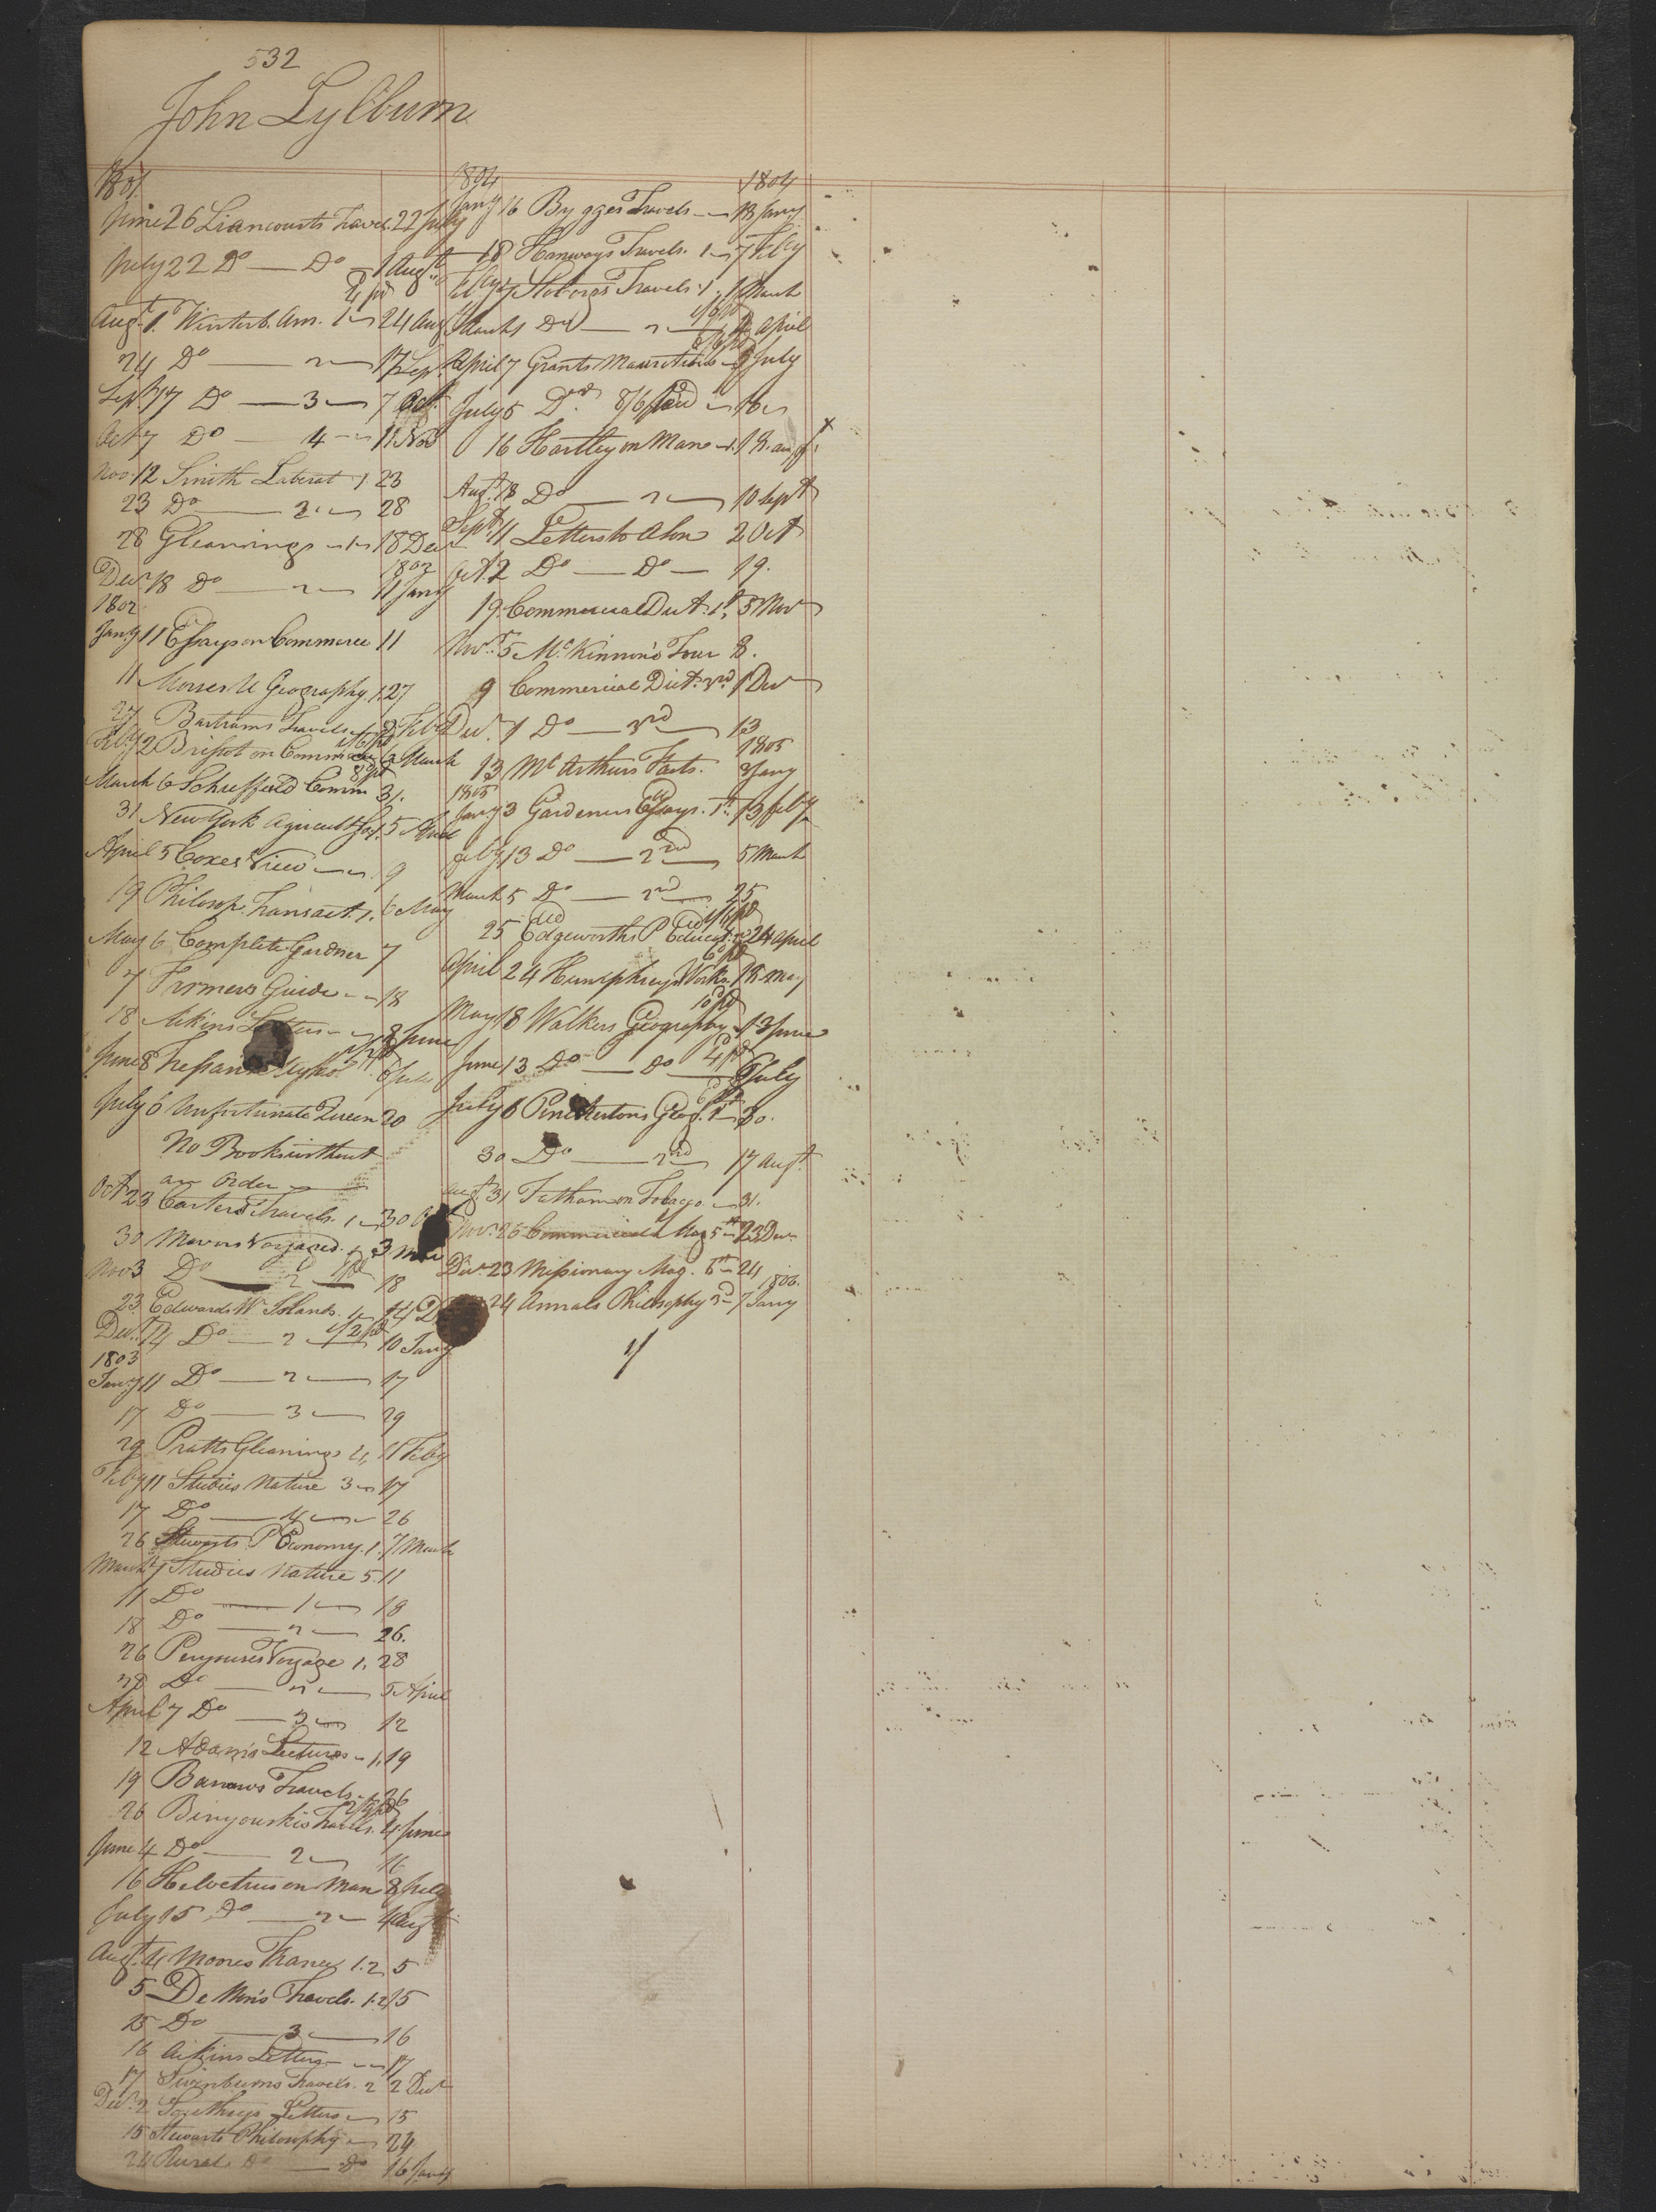 532
John Lylburn
1801
June 26 Liancourts Travels. 22 July
July 22 Do — Do — 1 Augt
Augt 1 Winterb. Am. 1 — 24 Aug
24 Do — 2 — 17 Sep
Sept 17 Do — 3 — 7 Oct
Oct 7 Do — 4 — 11 Nov
Nov. 12 Smith 1 23
23 Do — 2 — 28
28 Gleanings — 1 — 18 Decr
1802
Decr 18 Do — 2 — 11 Jany
1802
Jany 11 Essays on Commerce 11
11 Morses U Geography. 1. 27
27 Bartrams Travels
Feby 2 Brissot on Commerce 6 March
March 6 Scheffield Comm 31.
31 New York Agricult 5 April
April 5 Coxes View — 9
19 Philosop. Transact. 1. 6 May
May 6 Complete Gardner 7
7 Farmers Guide — 18
18 Aikins Letters — 8 June
June 8
July 6 Unfortunate Queen 20
No Books without
an Order
Oct 23 Carters Travels. 1 — 30
30 Mavors Voyages. 3
Nov 3 Do 2 18
23 Edwards W Islands. 1 — 14 D
Decr 14 Do — 2 — 10 Jany
1803
Jany 11 Do — 2 — 17
17 Do — 3 — 29
29 Pratts Gleanings 11 Feby
Feby 11 Studies Nature 3 — 17
17 Do — 4 — 26
26 Stewarts P Economy. 1. 7 March
March 7 Studies Nature 5. 11
11 Do — 1 — 18
18 Do — 2 — 26.
26 Voyage 1. 28
28 Do — 2 — 5 April
April 7 Do — 3 — 12
12 Adams Lectures — 1. 19
19 Barrows Travels — 26
26 Travels. 4 June
June 4 Do — 2 — 16
16 Helvetius on Man 8 July
July 15 Do — 2 — 4 Augt
Augt 4 Moores France 1.2 5
5 De Non's Travels. 1.2 15
15 Do — 3 — 16
16 Aikins Letters — 17
17 Swinburns Travels. 2 2 Decr
Decr 2 Southeys Letters — 15
15 Stewarts Philosophy — 24
24 Rural Do — Do 16 Jany
1804 1804
Jany 16 Bygges Travels — 18 Jany
18 Hanways Travels. 1 — 7 Feby
Feby 7 Travels 1. 1 March
March 1 Do — 2 — April
April 7 Grants Mauritius — 5 July
July 5 Do 8/6 paid — 16
16 Hartley on Man — 1. 18. aug
Augt 18 Do — 2 — 10 Sept
Sept 11 Letters to a Son 2 Oct
Oct. 2 Do — Do — 19.
19. Commercial Dict. 1st 5 Nov
Nov. 5 McKinnon's Tour 8.
9 Commercial Dict. 1 Decr
Decr. 1 Do — 3rd — 13
1805
13 McArthurs Facts. 3 Jany
1805
Jany 3 Gardeners Essays. 1st 13 feby
feby 13 Do — 2nd — 5 March
March 5 Do — 2nd — 25
25 Edgeworths P Educat. 24 April
April 24 Humphreys Works 18 May
May 18 Walkers Geography — 13 June
June 13 Do — Do — 6 July
July 6 Pinckertons Geog. 1st 30.
30 Do — 2nd — 17 Augt
Augt 31 Tatham on Tobacco — 31.
Novr 26 Commercial Mag 5th 23 Decr
Decr 23 Missionary Mag. 6th 24
1806.
24 Annals Philosophy 3d 7 Jany